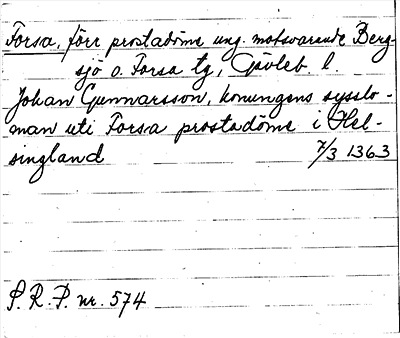 Forsa, förr prostadöme ung. motsvarande Berg-
sjö o. Forsa tg, Gävleb. l.
Johan Gunnarsson, konungens sysslo-
man uti Forsa prostadöme i Hel-
singland 7/3 1363
S. R. P. nr. 574